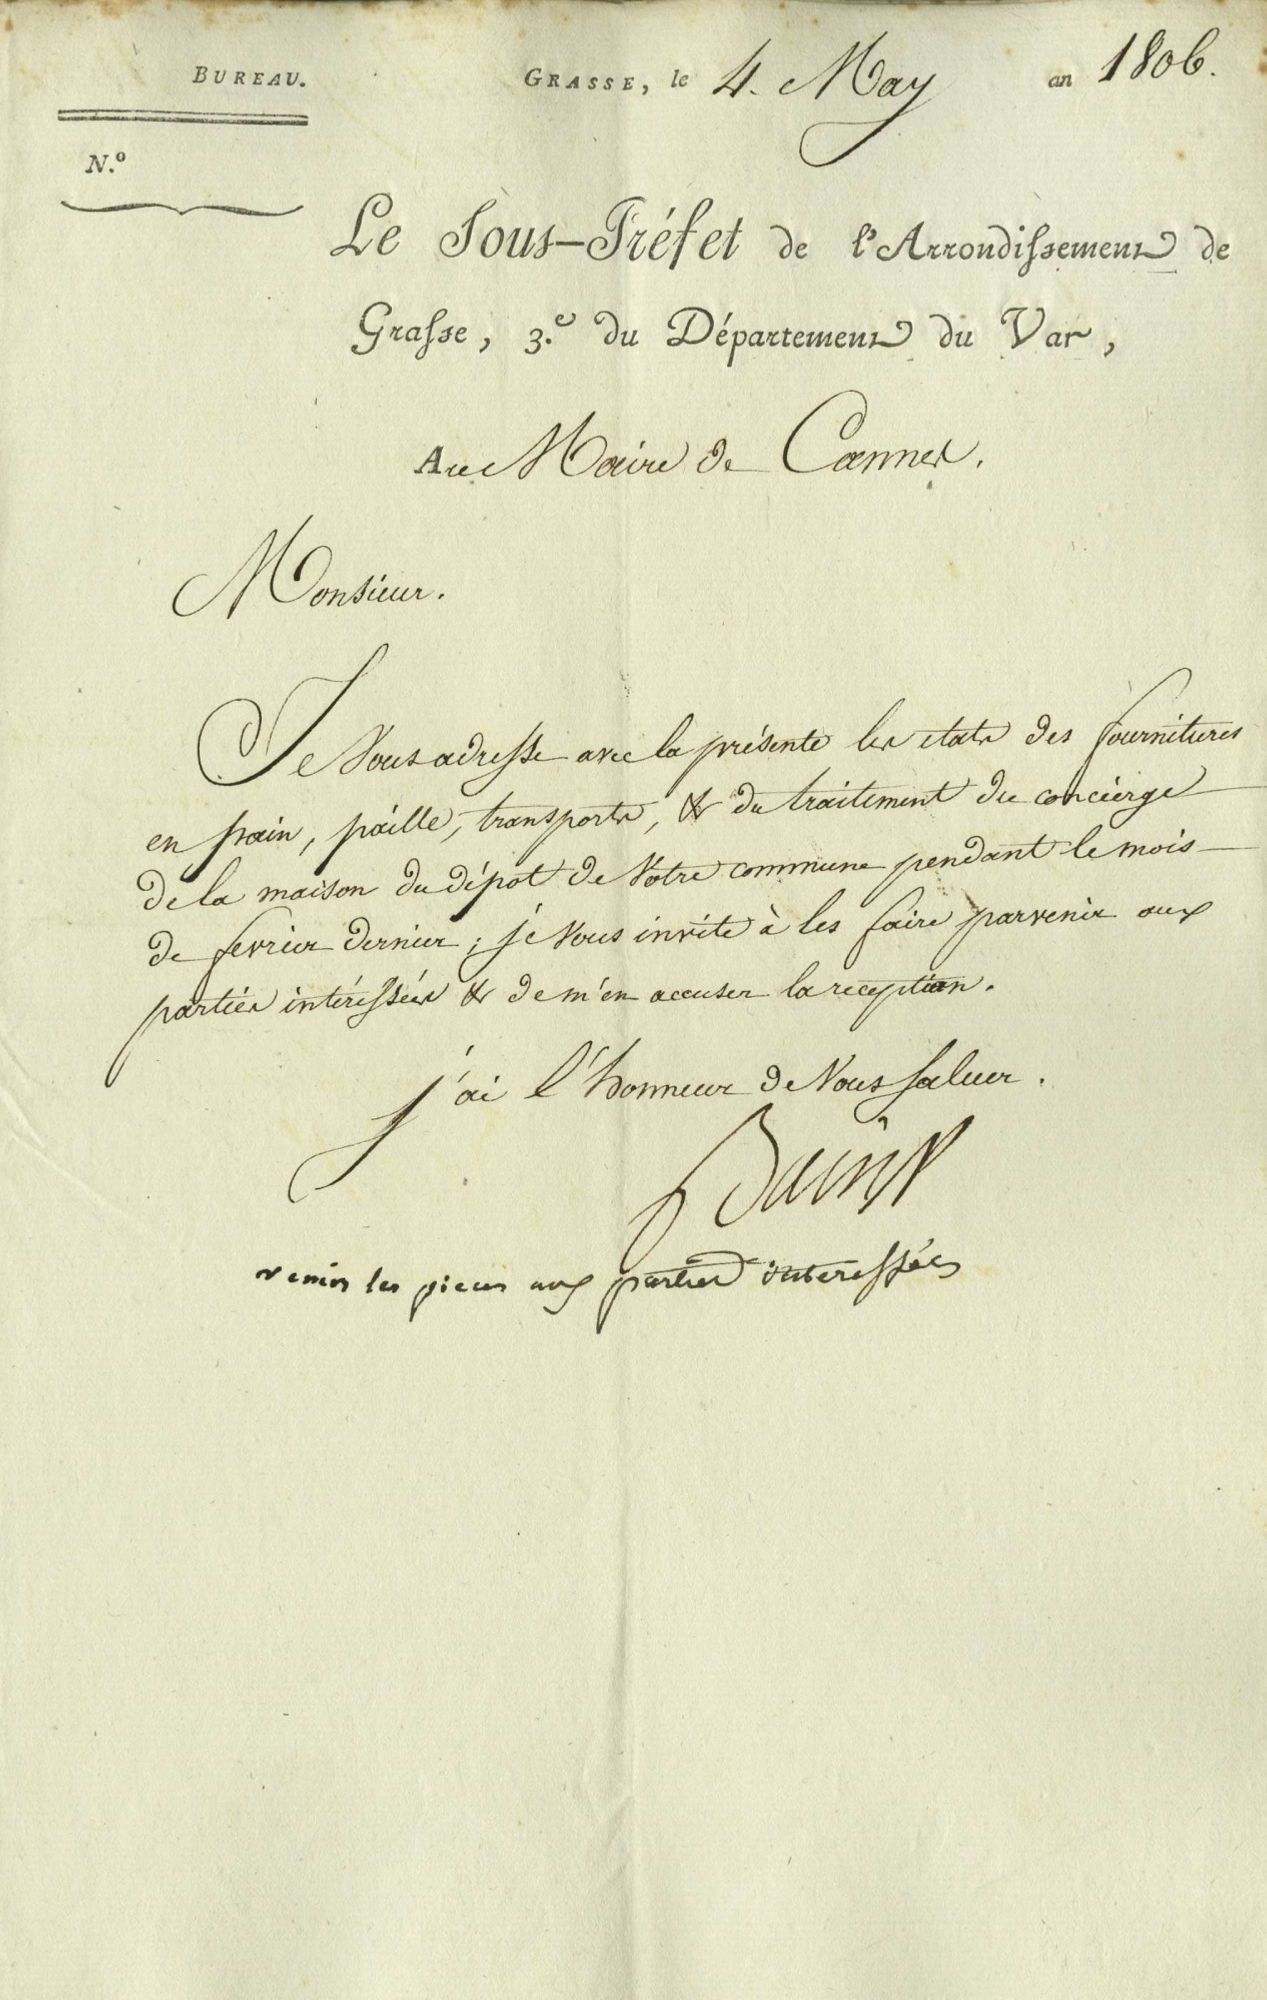 BUREAU.
GRASSE, le 4. May an 1806.
N.º
Le Sous-Préfet de l'Arrondissement de
Grasse, 3.e du Département du Var,
Au Maire de Cannes.
Monsieur.
Je Vous adresse avec la présente les etats des fournitures
en pain, paille, transports, & du traitement du concierge
de la maison du dépot de Votre commune pendant le mois
de fevrier dernier; je Vous invite à les faire parvenir aux
parties intéressées & de m'en accuser la reception.
j'ai l'honneur de Vous saluer.
les pieces aux parties interessées